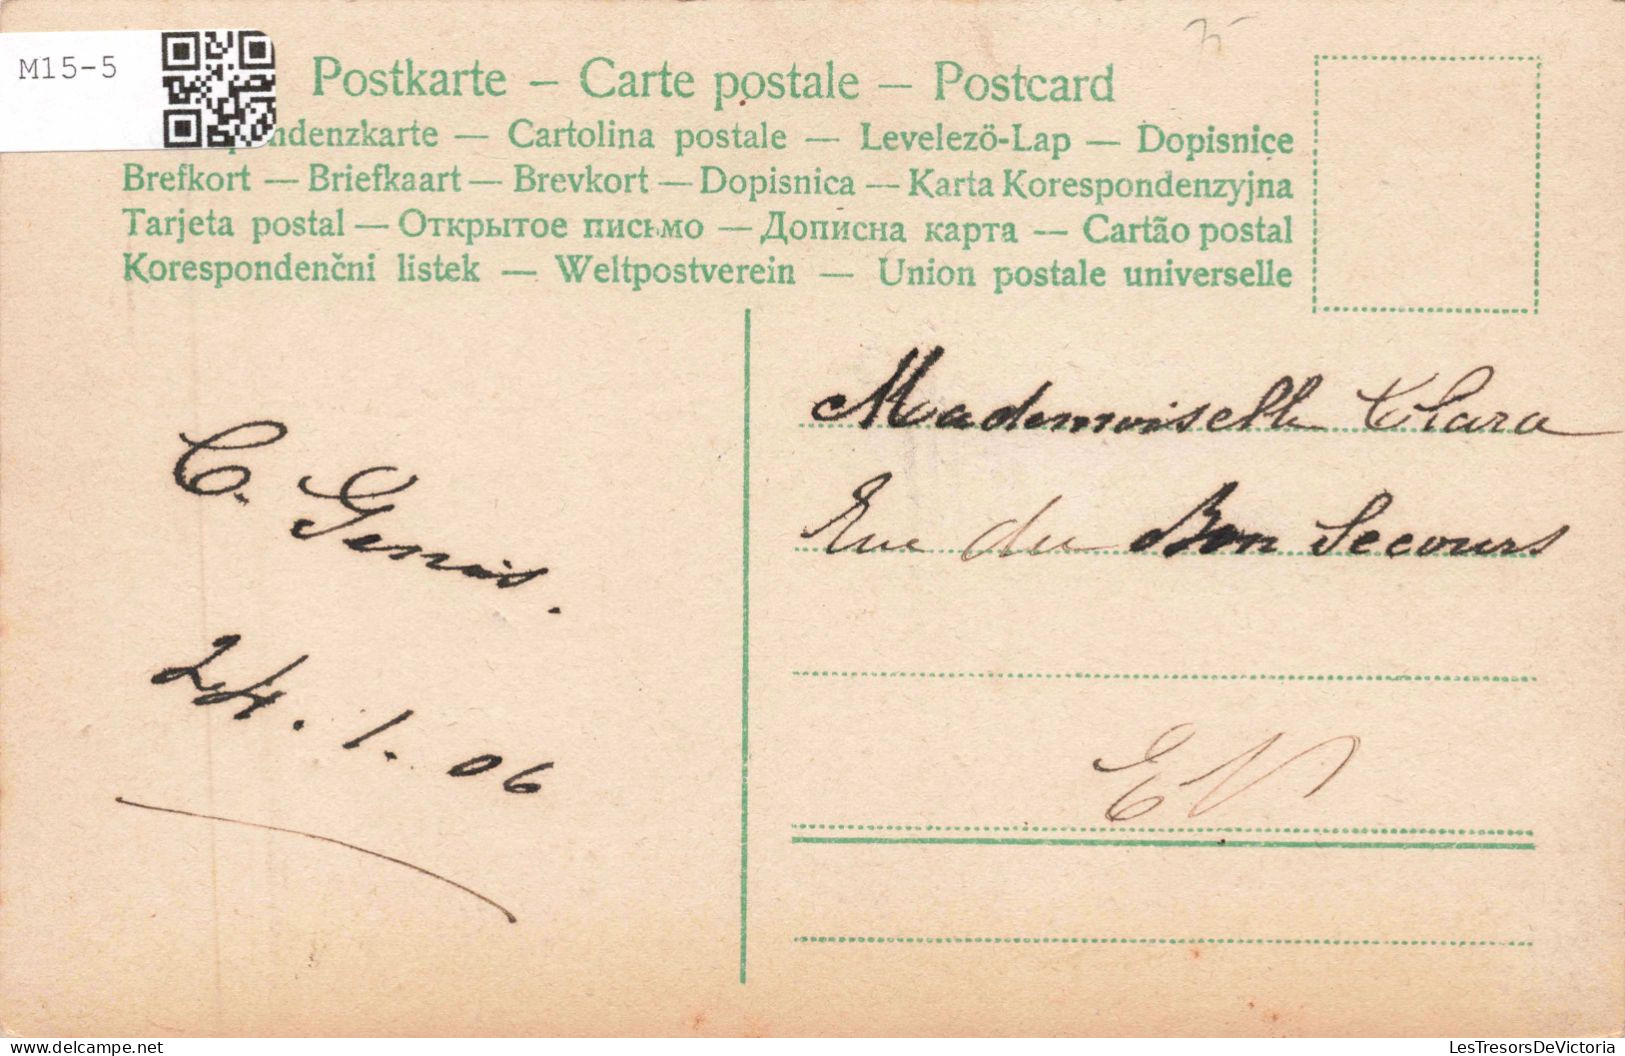 M15-5
Postkarte – Carte postale – Postcard
ndenzkarte — Cartolina postale — Levelező-Lap — Dopisnice
Brefkort — Briefkaart — Brevkort — Dopisnica — Karta Korespondenzyjna
Tarjeta postal — Открытое письмо — Дописна карта — Cartão postal
Korespondenčni listek — Weltpostverein — Union postale universelle
Mademoiselle Clara
Rue du Bon Secours
EV
C. Genis.
24. 1. 06
LesTresorsDeVictoria